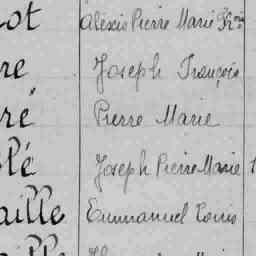 ot Alexis Pierre Marie Frois
re Joseph François
ré Pierre Marie
lé Joseph Pierre Marie
aille Emmanuel Louis